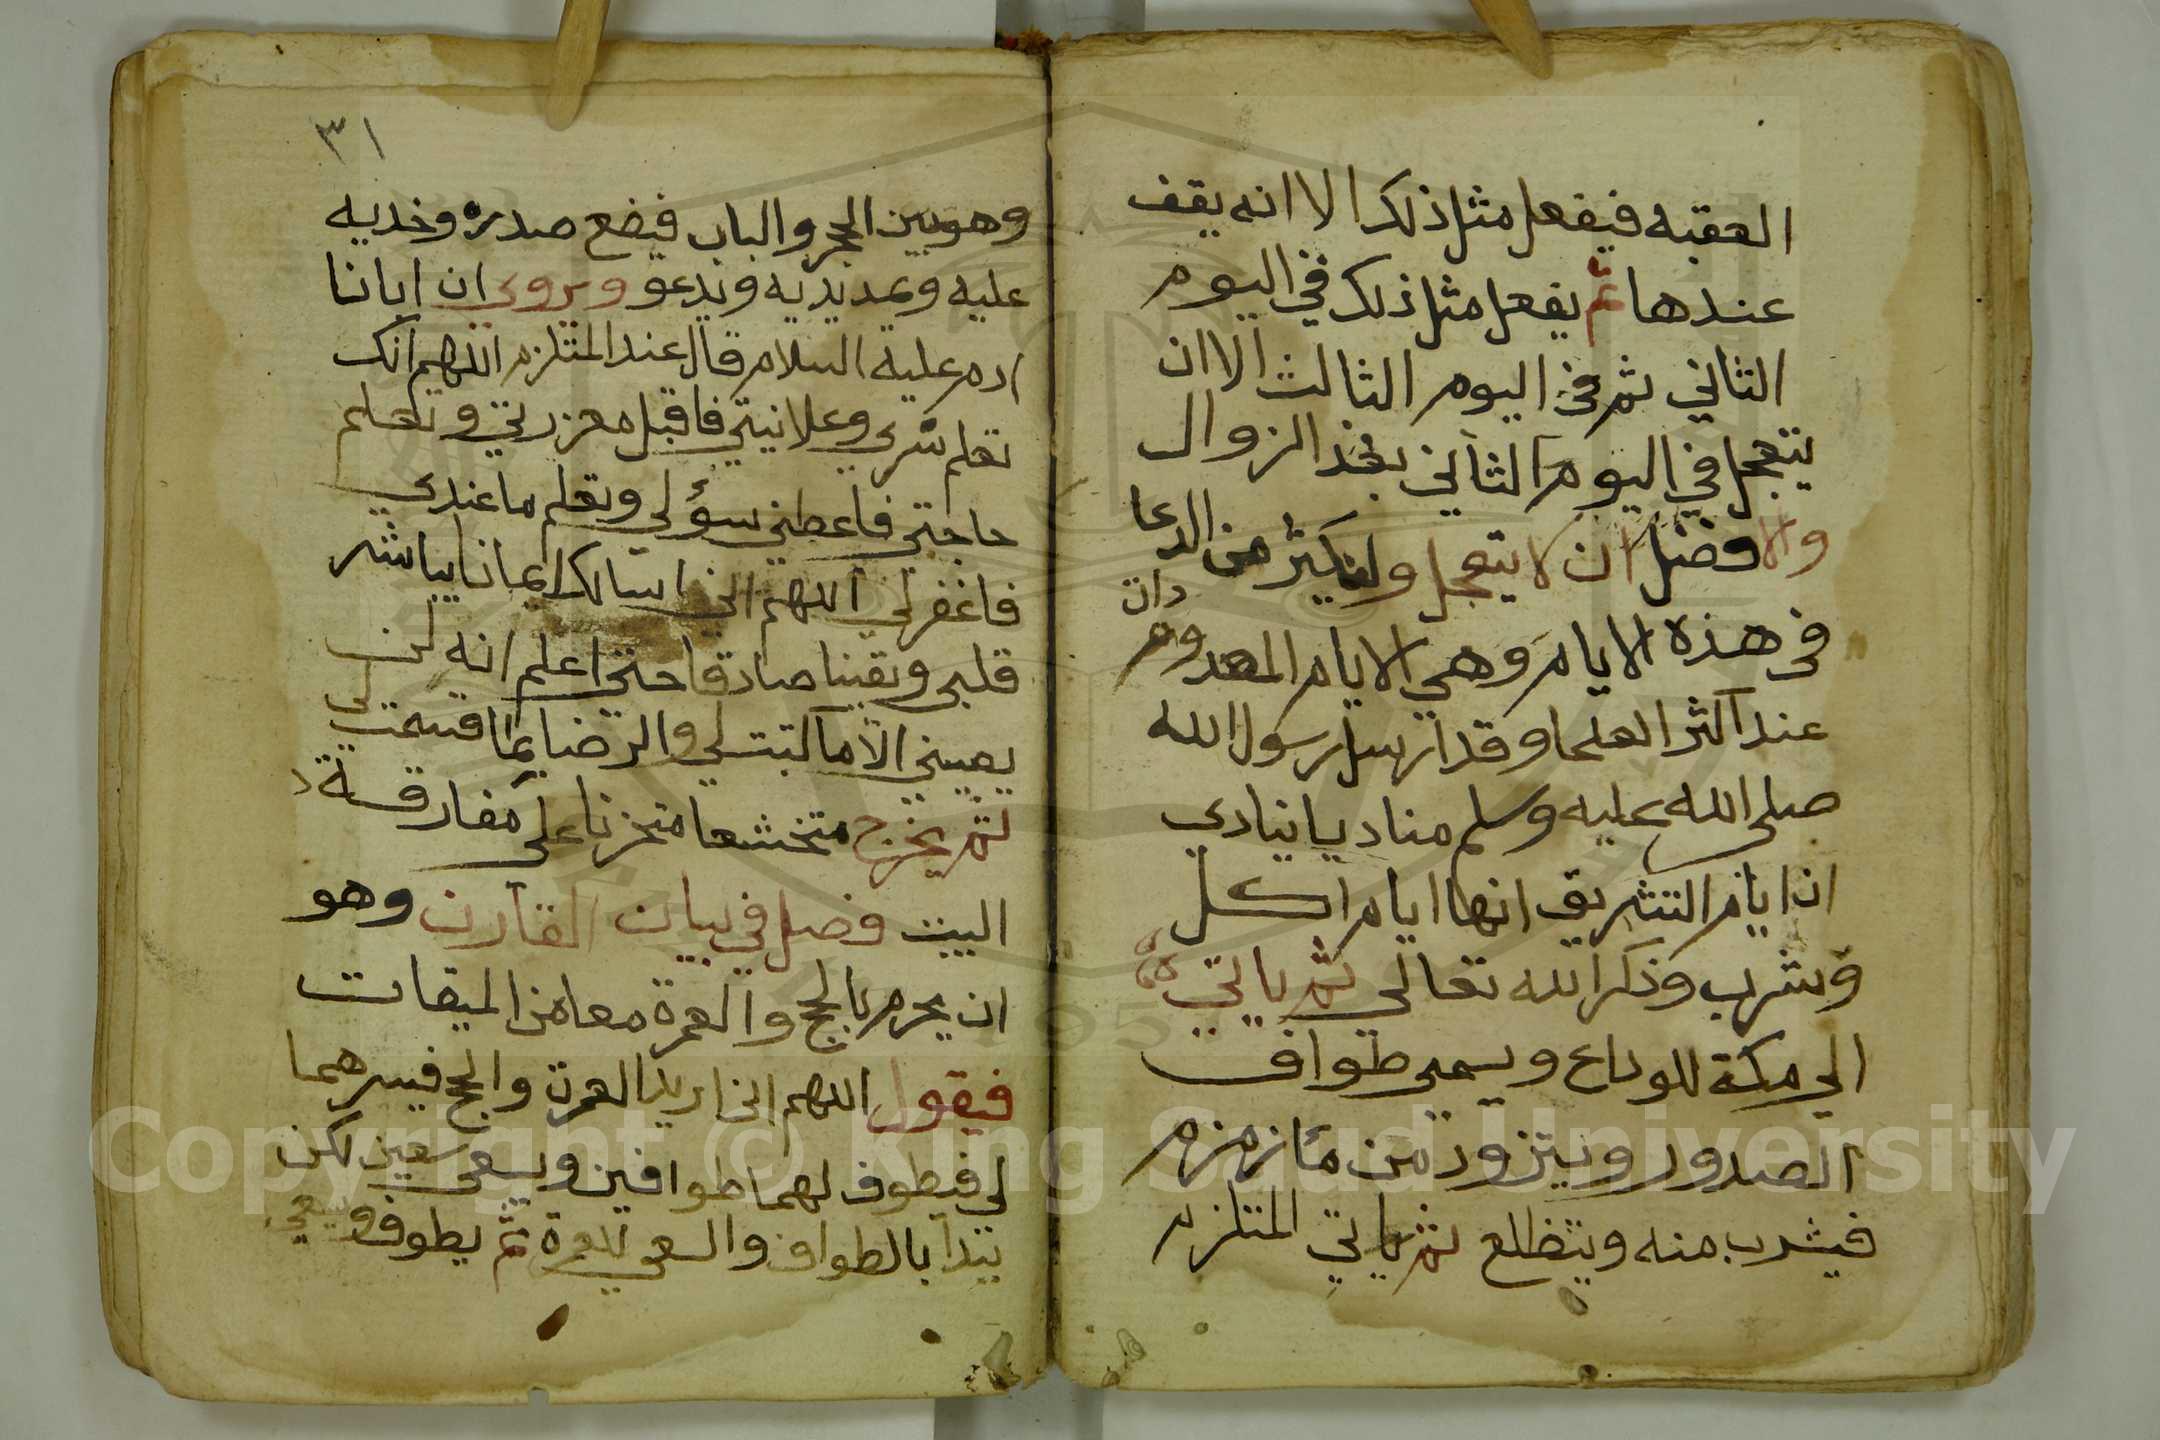 العقبه فيفعل مثل ذلك الا انه يقف
عندها ثم يفعل مثل ذلك في اليوم
الثاني ثم في اليوم الثالث الا ان
يتعجل في اليوم الثاني بعد الزوال
والافضل ان لا يتعجل وليكثر من الدعا
في هذه الايام وهي الايام المعدودات
عند اكثر العلما وقد ارسل رسول الله
صلى الله عليه وسلم مناديا ينادي
ان ايام التشريق انها ايام اكل
وشرب وذكر الله تعالي ثم ياتي
الي مكة للوداع ويسمى طواف
الصدور ويتزود من ماء زمزم
فيشرب منه ويتظلع ثم ياتي الملتزم
٣١
وهو بين الحجر والباب فيضع صدره وخديه
عليه ويمد يديه ويدعو ويروي ان ابانا
ادم عليه السلام قال عند الملتزم اللهم انك
تعلم سري وعلانيتي فاقبل معزرتي وتعلم
حاجتي فاعطني سؤلي وتعلم ما عندي
فاغفر لي اللهم اني اسالك ايمانا يباشر
قلبي ويقينا صادقا حتي اعلم انه لن
يصيبني الا ما كتبت لي والرضا بما قسمت لي
ثم يخرج متخشعا متحزنا على مفارقة
البيت فصل في بيان القارن وهو
ان يحرم بالحج والعمرة معا من الميقات
فيقول اللهم اني اريد العمرة والحج فيسرهما
لي فيطوف لهما طوافين ويسعى سعين لكن
يبتدا بالطواف والسعي للعمرة ثم يطوف ويسعي
Copyright © King Saud University